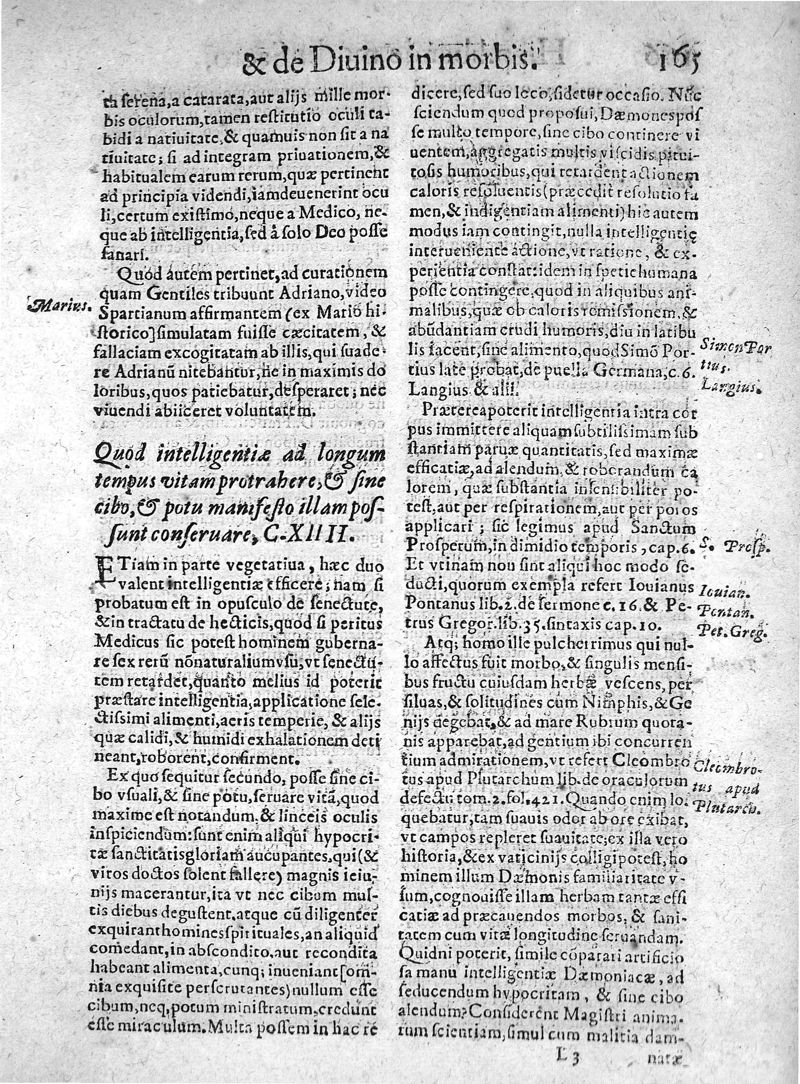 & de Diuino in morbis. 165
ta serena, a catarata, aut alijs mille mor-
bis oculorum, tamen restitutio oculi ta-
bidi a natiuitate, & quamuis non sit a na
tiuitate; si ad integram priuationem, &
habitualem earum rerum, quæ pertinent
ad principia videndi, iam deuenerint ocu
li, certum existimo, neque a Medico, ne-
que ab intelligentia, sed à solo Deo posse
sanari.
Quod autem pertinet, ad curationem
quam Gentiles tribuunt Adriano, video
Marius.
Spartianum affirmantem (ex Mario hi-
storico] simulatam fuisse cæcitatem, &
fallaciam excogitatam ab illis, qui suade
re Adrianũ nitebantur, ne in maximis do
loribus, quos patiebatur, desperaret; nec
viuendi abiiceret voluntatem.
Quod intelligentiæ ad longum
tempus vitam protrahere, & sine
cibo, & potu manifesto illam pos-
sunt conseruare, C-XIIII.
ETiam in parte vegetatiua, hæc duo
valent intelligentiæ efficere; nam si
probatum est in opusculo de senectute,
& in tractatu de hecticis, quod si peritus
Medicus sic potest hominem guberna-
re sex rerũ nõ naturalium vsu; vt senectu-
tem retardet, quanto melius id poterit
præstare intelligentia, applicatione sele-
ctissimi alimenti, aeris temperie, & alijs
quæ calidi, & humidi exhalationem deti
neant, roborent, confirment.
Ex quo sequitur secundo, posse sine ci-
bo vsuali, & sine potu, seruare vitã, quod
maxime est notandum, & linceis oculis
inspiciendum: sunt enim aliqui hypocri-
tæ sanctitatis gloriam aucupantes, qui (&
viros doctos solent fallere) magnis ieiu-
nijs macerantur, ita vt nec cibum mul-
tis diebus degustent, atque cũ diligenter
exquirant homines spirituales, an aliquid
comedant, in abscondito, aut recondita
habeant alimenta, cunq; inueniant [om-
nia exquisite perscrutantes) nullum esse
cibum, neq, potum ministratum, credunt
esse miraculum. Multa possem in hac re
dicere, sed suo loco, si detur occasio. Nũc
sciendum quod proposui, Dæmones pos
se multo tempore, sine cibo continere vi
uentem, aggregatis multis viscidis pitui-
tosis humoribus, qui retardent actionem
caloris resoluentis (præcedit resolutio fa
men, & indigentiam alimenti) hic autem
modus iam contingit, nulla intelligentię
interueniente actione, vt ratione, & ex-
perientia constat: idem in specie humana
posse contingere, quod in aliquibus ani-
malibus, quæ ob caloris remissionem, &
abũdantiam crudi humoris, diu in latibu
lis iacent, sine alimento, quod Simõ Por-
Simon Por
tius late probat, de puella Germana, c. 6.
tius.
Langius & alij.
Langius.
Præterea poterit intelligentia intra cor
pus immittere aliquam subtilissimam sub
stantiam paruæ quantitatis, sed maximæ
efficatiæ, ad alendum, & roborandum ca
lorem, quæ substantia insensibiliter po-
test, aut per respirationem, aut per poros
applicari; sic legimus apud Sanctum
Prosperum, in dimidio temporis, cap. 6.
S. Prosp.
Et vtinam non sint aliqui hoc modo se-
ducti, quorum exempla refert Iouianus
Iouian.
Pontanus lib. 2. de sermone c. 16. & Pe-
Pontan.
trus Gregor. lib. 35. sintaxis cap. 10.
Pet. Greg.
Atq; homo ille pulcherrimus qui nul-
lo affectus fuit morbo, & singulis mensi-
bus fructu cuiusdam herbæ vescens, per
siluas, & solitudines cum Nimphis, & Ge
nijs degebat, & ad mare Rubrum quota-
nis apparebat, ad gentium ibi concurren
tium admirationem, vt refert Cleombro
Cleombro-
tus apud Plutarchum lib. de oraculorum
tus apud
defectu tom. 2. fol. 421. Quando enim lo-
Plutarch.
quebatur, tam suauis odor ab ore exibat,
vt campos repleret suauitate; ex illa vero
historia, & ex vaticinijs colligi potest, ho
minem illum Dæmonis familiaritate v-
sum, cognouisse illam herbam tantæ effi
catiæ ad præcauendos morbos, & sani-
tatem cum vitæ longitudine seruandam.
Quidni poterit, simile cõparari artificio
sa manu intelligentiæ Dæmoniacæ, ad
seducendum hypocritam, & sine cibo
alendum? Considerent Magistri anima-
rum scientiam, simul cum malitia dam-
L 3 natæ